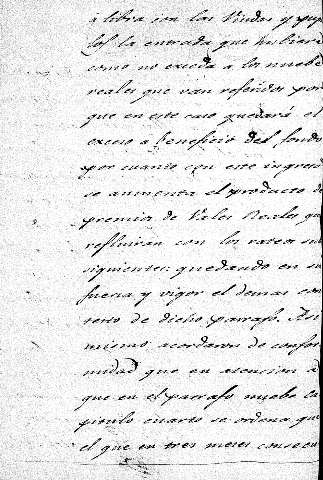 á libra con las Viudas y pupi
los la entrada que hubiere
como no exceda a los nuebe
reales que van referidos por
que en este caso quedará el
exceso a beneficio del fondo
por cuanto con este ingreso
se aumenta el producto de
premios de Vales Reales que
refluirán con los rateos su
siguientes: quedando en su
fuerza y vigor el demas con
texto de dicho parrafo. Asi
mismo acordaron de confor
midad que en atencion a
que en el parrafo nuebe ca
pitulo cuarto se ordena que
el que en tres meses consecu